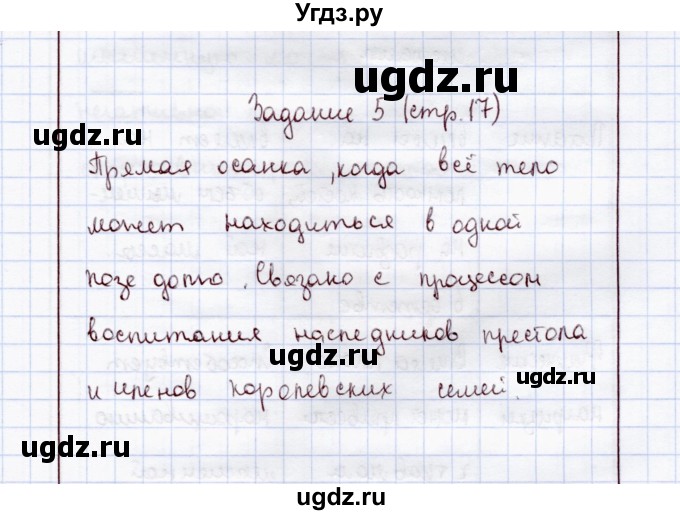 Угдз.ру
ugdz.ru
ugdz.ru
Задание 5 (стр.17)
Прямая осанка, когда всё тело
может находиться в одной
позе долго. Связано с процессом
воспитания наследников престола
и членов королевских семей.
ugdz.ru
ugdz.ru
ugdz.ru
ugdz.ru
ugdz.ru